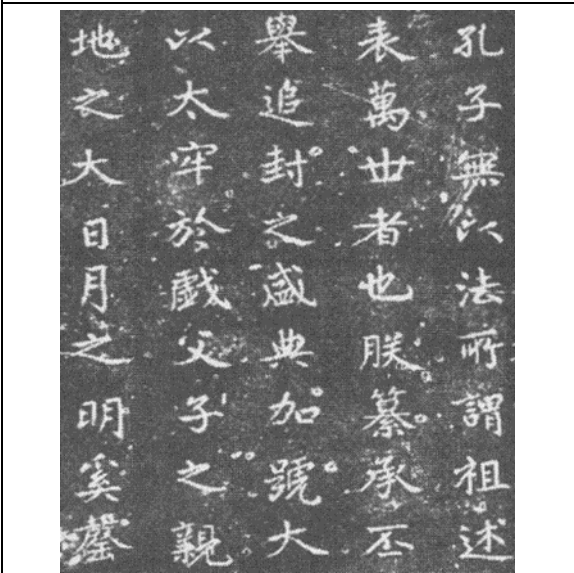 孔子無以法所謂祖述
表萬世者也朕纂承丕
舉追封之盛典加號大
以太牢於戲父子之親
地之大日月之明奚罄